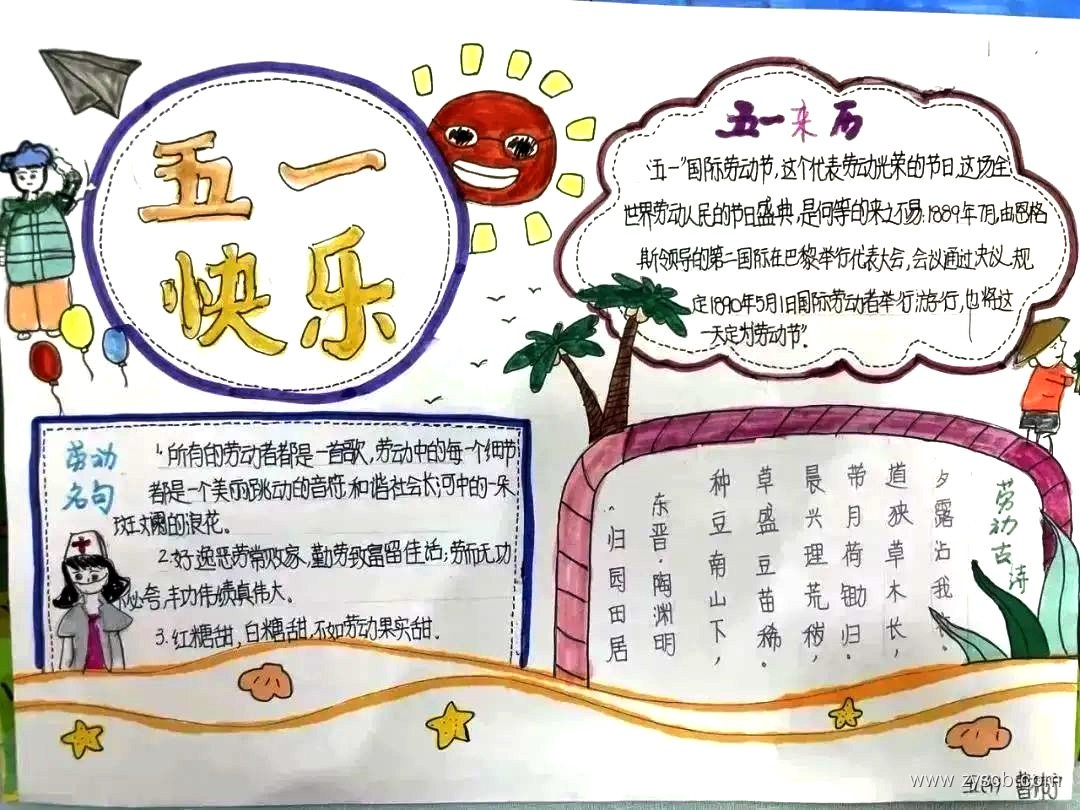 五一
快乐
五一来历
“五一”国际劳动节，这个代表劳动光荣的节日，这场全
世界劳动人民的节日盛典，是何等的来之不易。1889年7月，由恩格
斯领导的第一国际在巴黎举行代表大会，会议通过决议，规
定1890年5月1日国际劳动者举行游行，也将这
一天定为劳动节”
劳动
名句
1.所有的劳动者都是一首歌，劳动中的每一个细节
都是一个美丽跳动的音符，和谐社会长河中的一朵
斑斓的浪花。
2.好逸恶劳常败家，勤劳致富留佳话；劳而无功
必夸，丰功伟绩真伟大。
3.红糖甜，白糖甜，不如劳动果实甜.
归园田居
东晋·陶渊明
种豆南山下，
草盛豆苗稀。
晨兴理荒秽，
带月荷锄归。
道狭草木长，
夕露沾我
劳动古诗
www.zysob.com